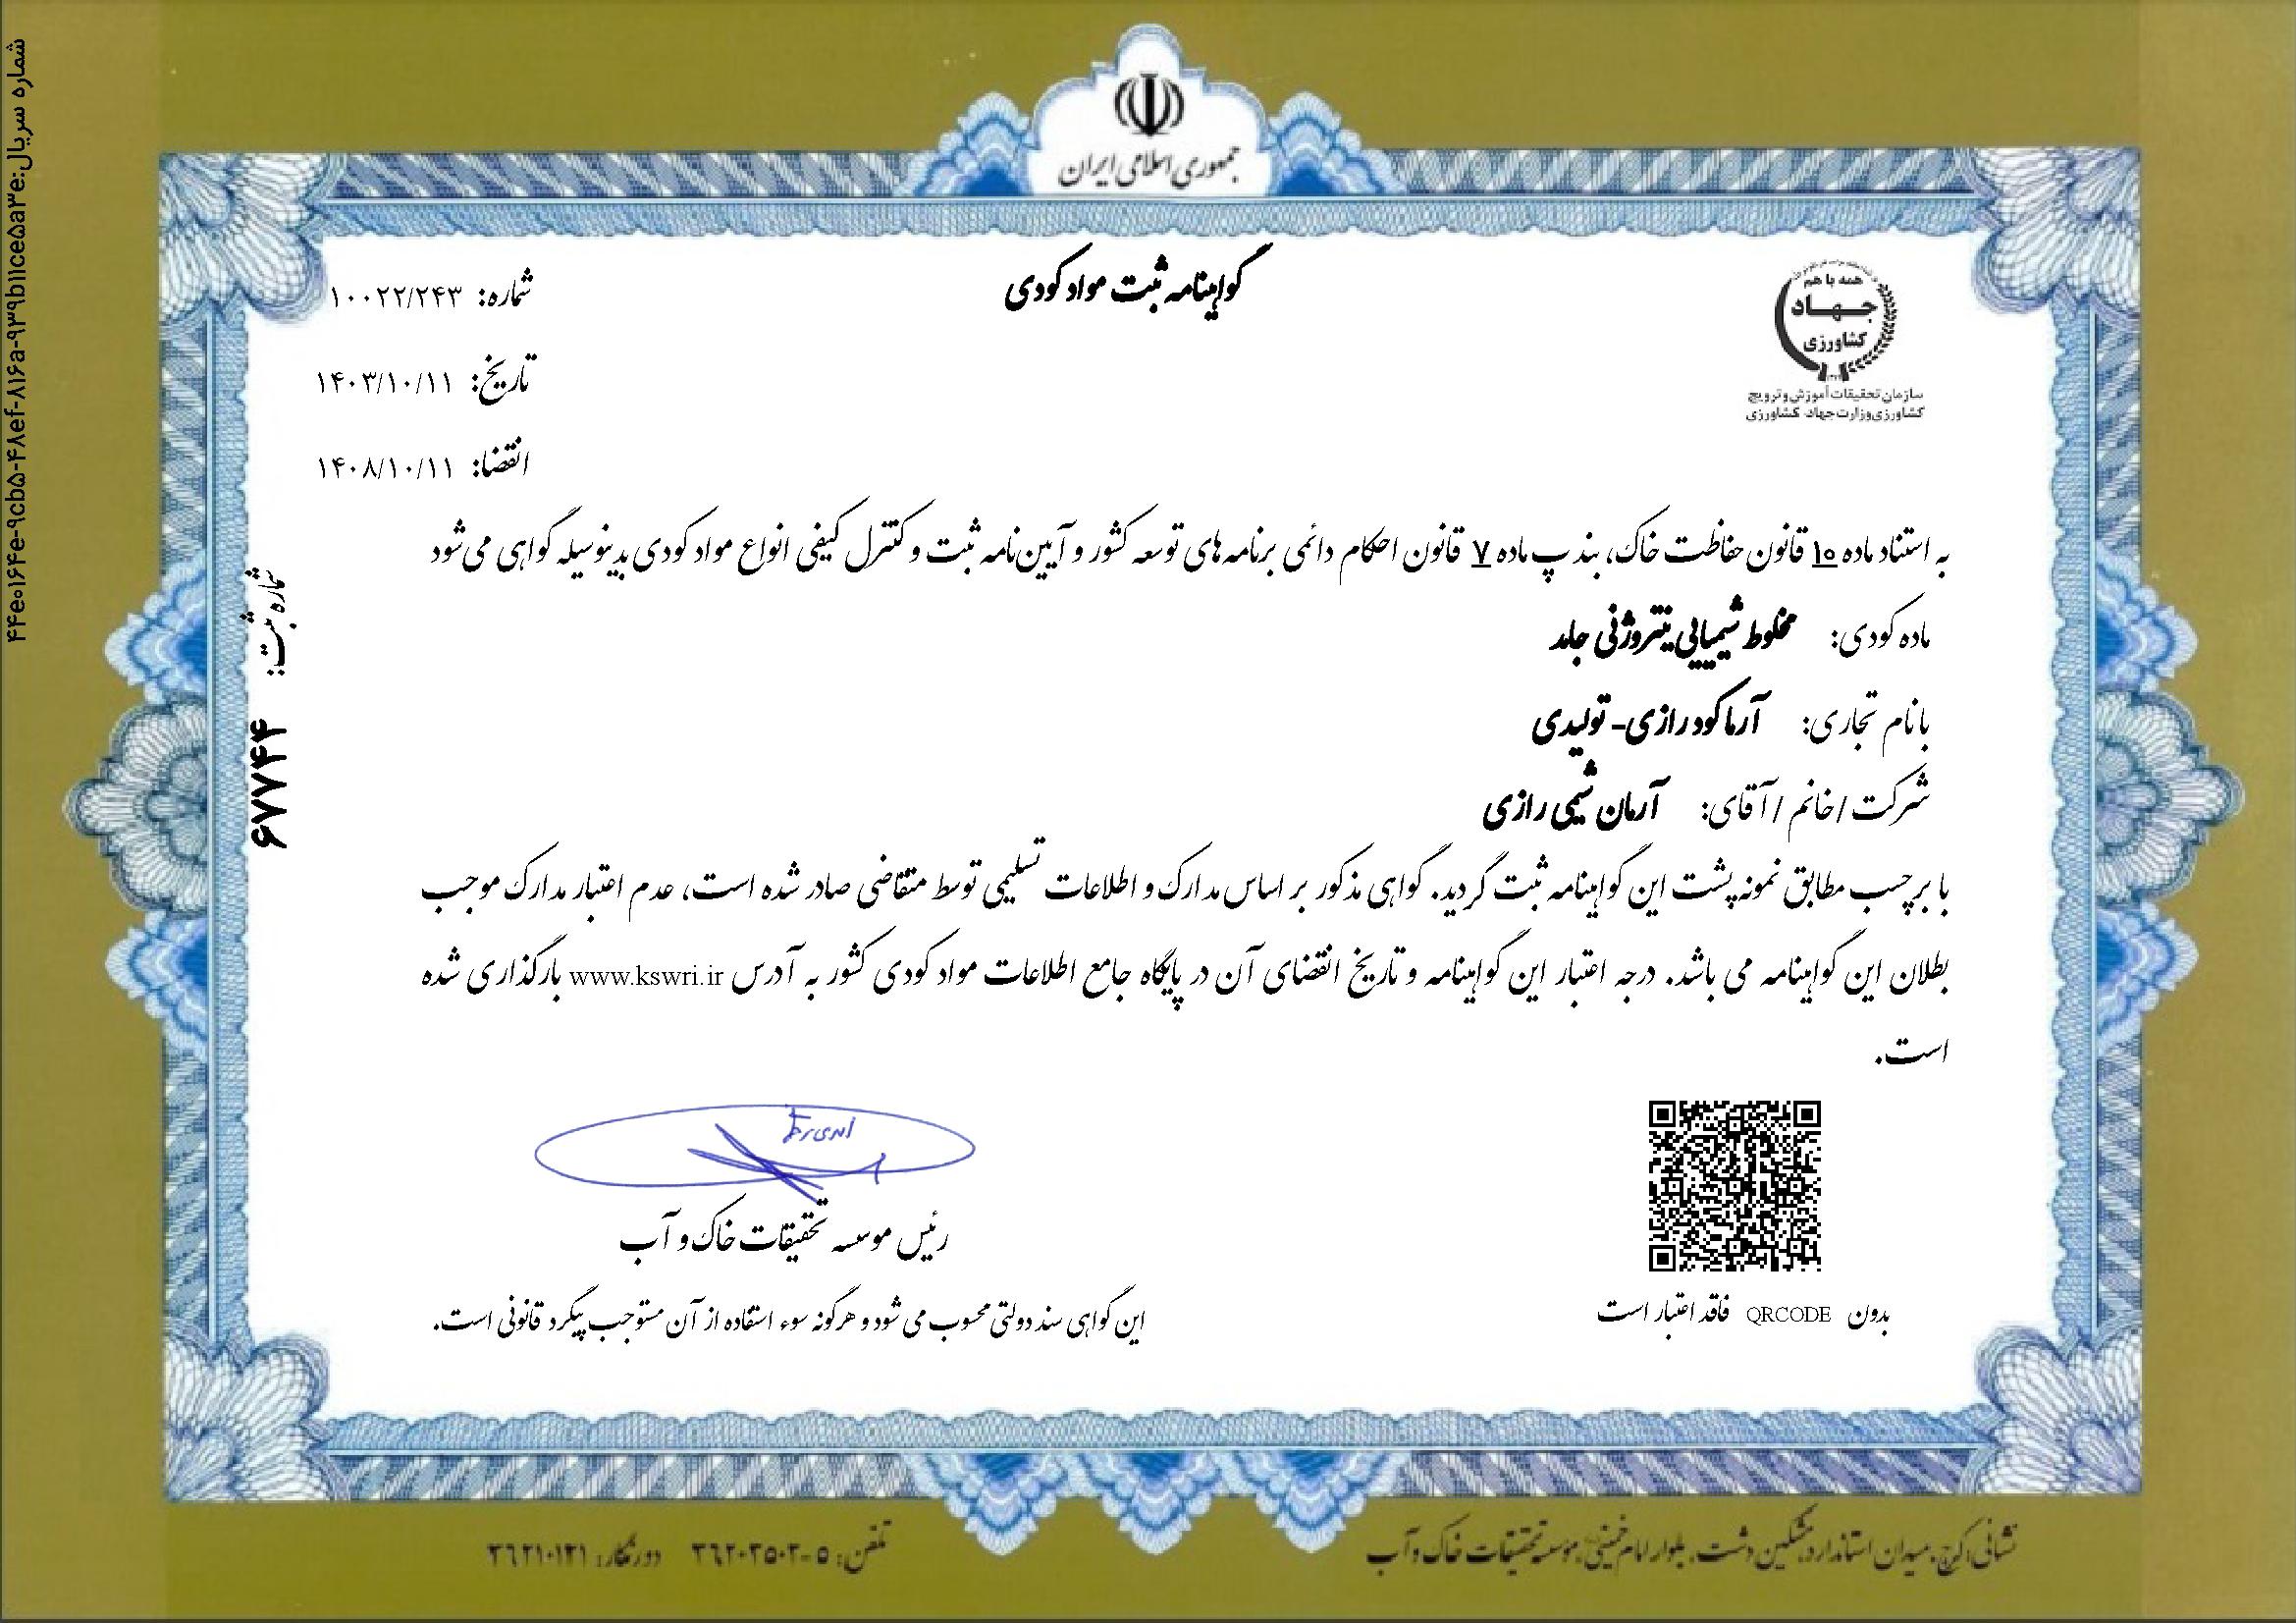 جمهوری اسلامی ایران
همه با هم
جهاد
کشاورزی
سازمان تحقیقات آموزش و ترویج
کشاورزی وزارت جهاد کشاورزی
گواهینامه ثبت مواد کودی
شماره: ۱۰۰۲۲/۲۴۳
تاریخ: ۱۴۰۳/۱۰/۱۱
انقضا: ۱۴۰۸/۱۰/۱۱
به استناد ماده ۱۰ قانون حفاظت خاک، بند پ ماده ۷ قانون احکام دائمی برنامه های توسعه کشور و آیین‌نامه ثبت و کنترل کیفی انواع مواد کودی بدینوسیله گواهی می شود
ماده کودی: مخلوط شیمیایی نیتروژنی جامد
با نام تجاری: آرما کود رازی- تولیدی
شرکت / خانم / آقای: آرمان شیمی رازی
با برچسب مطابق نمونه پشت این گواهینامه ثبت گردید. گواهی مذکور بر اساس مدارک و اطلاعات تسلیمی توسط متقاضی صادر شده است، عدم اعتبار مدارک موجب
بطلان این گواهینامه می باشد. درجه اعتبار این گواهینامه و تاریخ انقضای آن در پایگاه جامع اطلاعات مواد کودی کشور به آدرس www.kswri.ir بارگذاری شده
است.
رئیس موسسه تحقیقات خاک و آب
این گواهی سند دولتی محسوب می شود و هرگونه سوء استفاده از آن مستوجب پیگرد قانونی است.
بدون QRCODE فاقد اعتبار است
نشانی: کرج، میدان استاندارد، مشکین دشت، بلوار امام خمینی، موسسه تحقیقات خاک و آب
تلفن: ۵-۳۶۲۰۲۵۰۲ دورنگار: ۳۶۲۱۰۱۲۱
شماره ثبت: ۶۷۷۴۴
شماره سریال: ۴۴e۰۱۶۴e-۹cb۵-۴۸ef-۸۱۶a-۹۳۹b۱۱ce۵a۳e